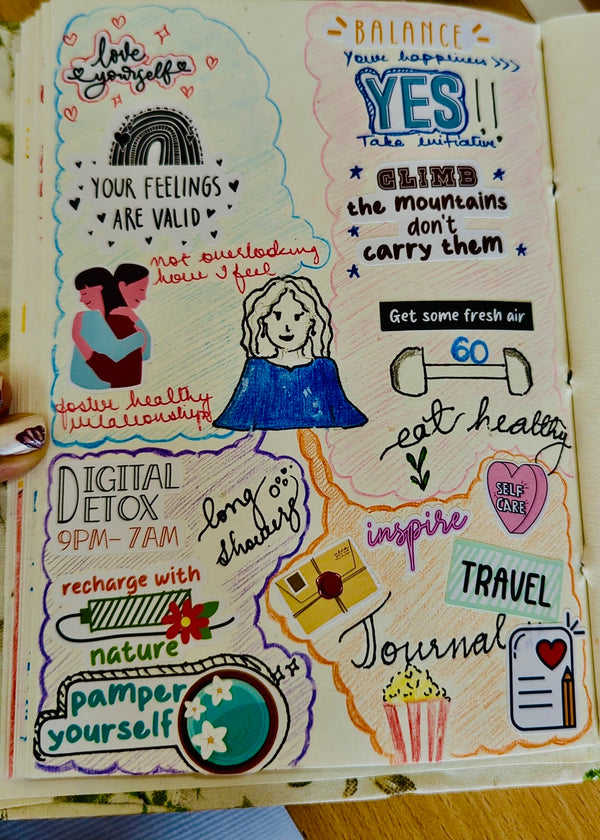 love
yourself
YOUR FEELINGS
ARE VALID
not overlooking
how I feel
foster healthy
relationships
BALANCE
Your happiness >>>
YES!!
Take initiative
CLIMB
the mountains
don't
carry them
Get some fresh air
60
eat healthy
DIGITAL
DETOX
9PM- 7AM
long
showers
recharge with
nature
pamper
yourself
SELF
CARE
inspire
TRAVEL
Journal